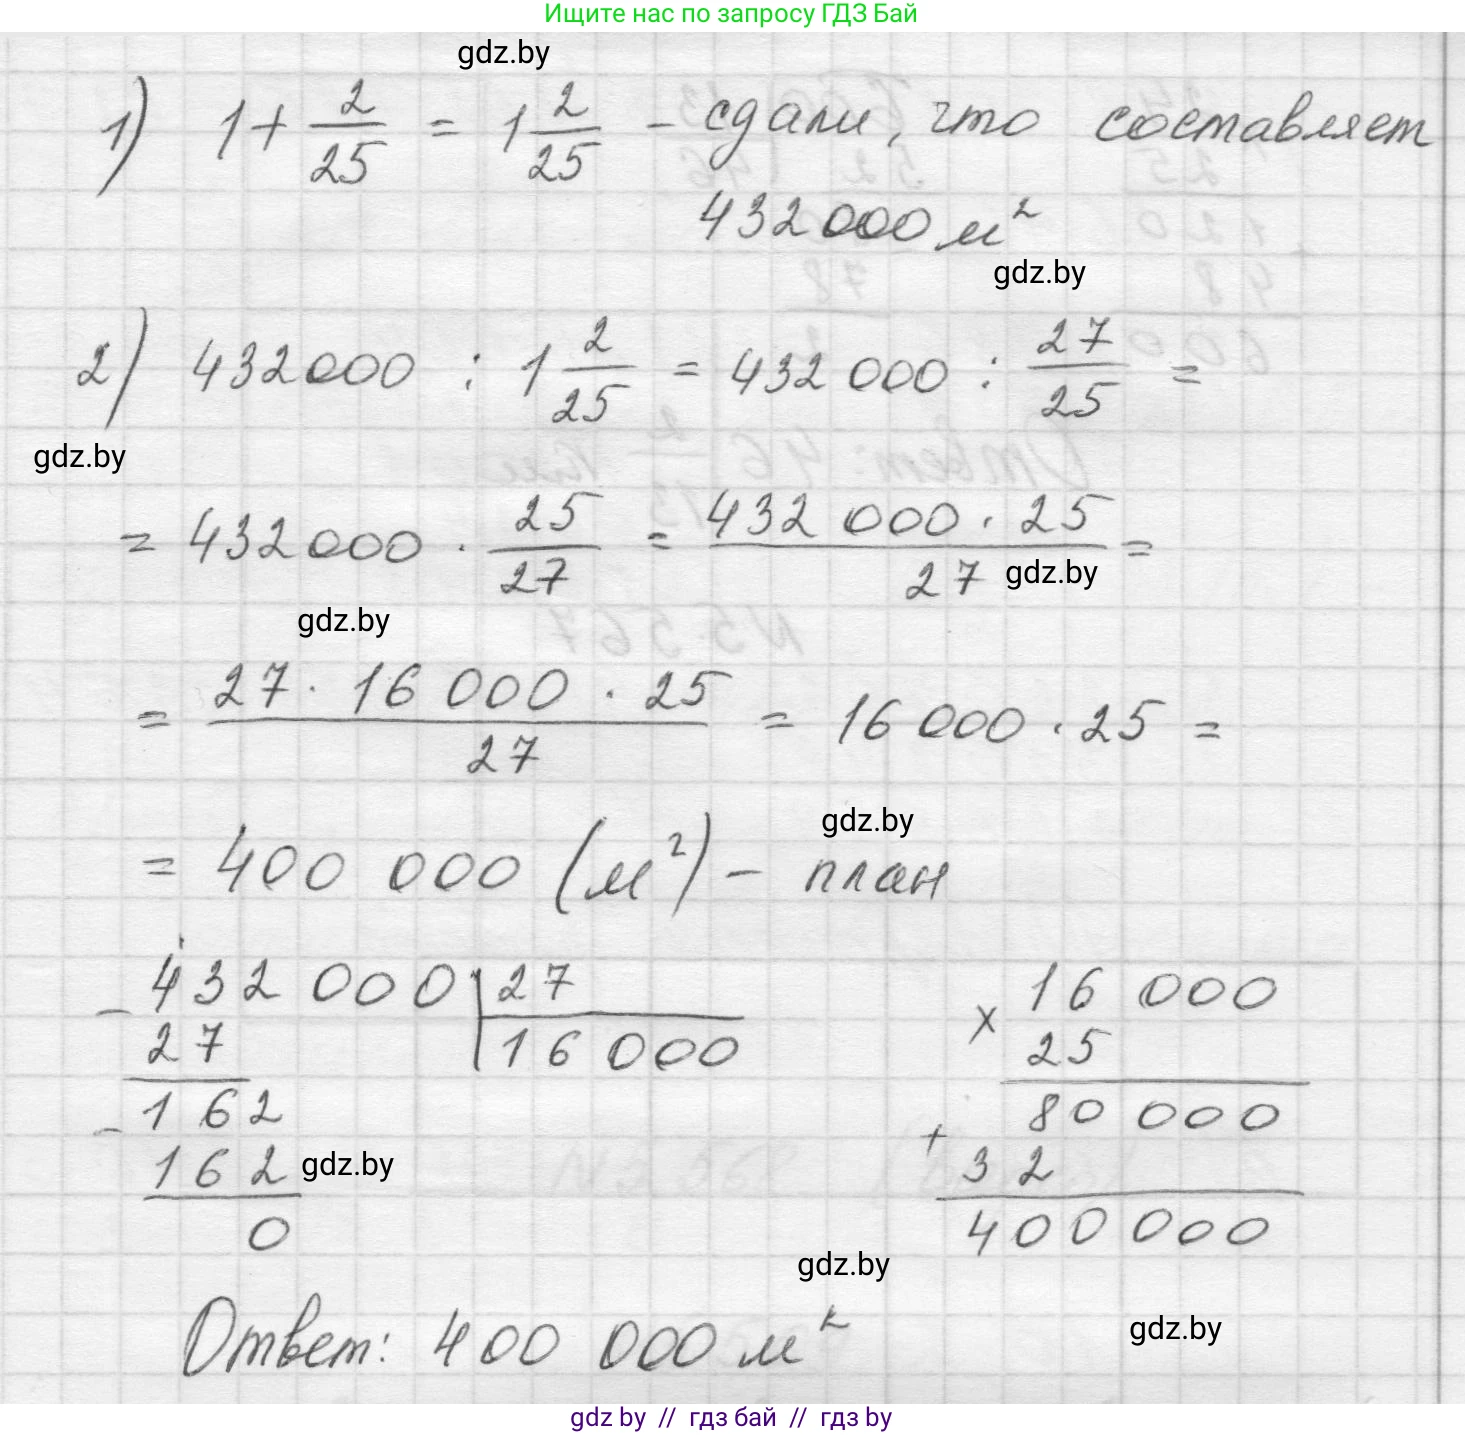 Ищите нас по запросу ГДЗ Бай
gdz.by
1) 1 + 2/25 = 1 2/25 - сдали, что составляет
432 000 м²
gdz.by
2) 432000 : 1 2/25 = 432 000 : 27/25 =
gdz.by
= 432000 · 25/27 = 432 000 · 25/27 =
gdz.by
gdz.by
= 27 · 16 000 · 25/27 = 16 000 · 25 =
gdz.by
= 400 000 (м²) - план
- 432 000 | 27
27
16000
162
- 162
gdz.by
0
× 16 000
25
80 000
+ 32
400 000
gdz.by
Ответ: 400 000 м²
gdz.by
gdz by // гдз бай // гдз by